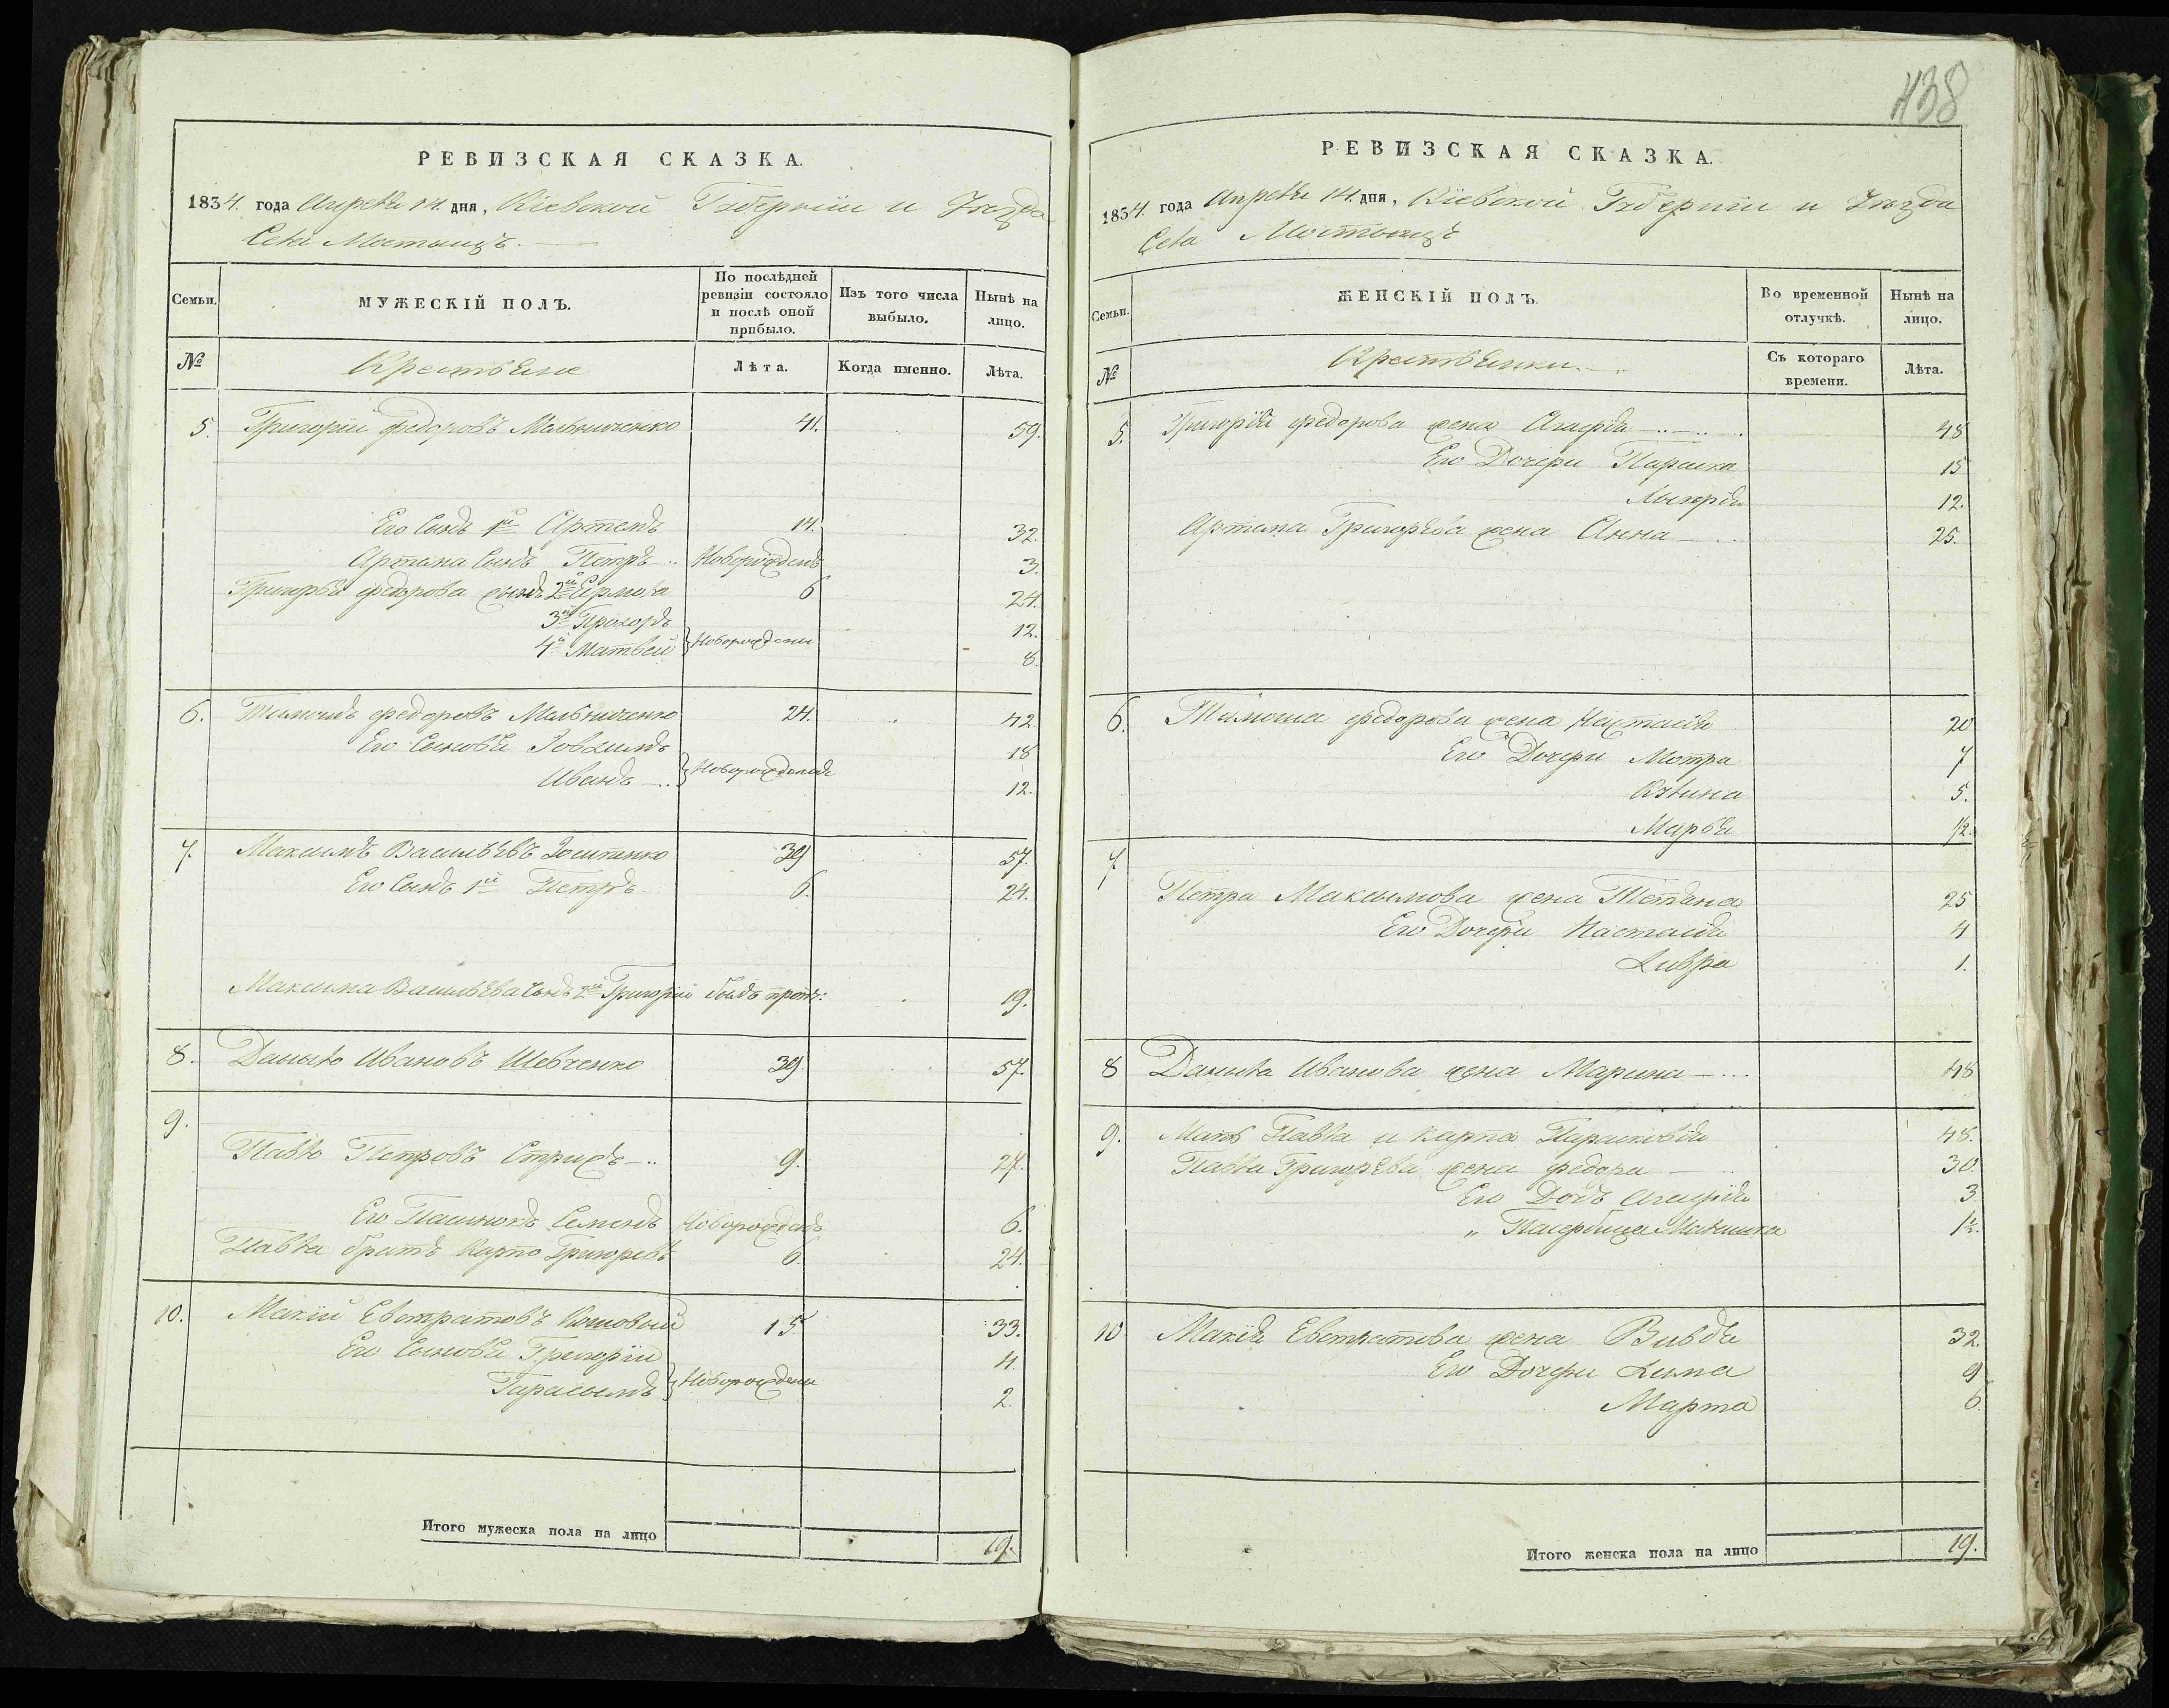 438
РЕВИЗСКАЯ СКАЗКА.
1834. года Апреля 14. дня, Кіевской Губерніи и Уезда
Села Мостыщъ.
Семьи.
МУЖЕСКІЙ ПОЛЪ.
По послѣдней ревизіи состояло и послѣ оной прибыло.
Изъ того числа выбыло.
Нынѣ на лицо.
№ Крестьяне Лѣта. Когда именно. Лѣта.
5. Григорій Федоровъ Мельниченко 41. 59.
Его Сынъ 1й Артемъ 14. 32.
Артема Сынъ Петръ Новорожденъ 3.
Григорья Федорова сынъ 2й Ярмола 6 24.
3й Прохоръ 12.
4й Матвей Новорождены 8.
6. Тимошъ Федоровъ Мельниченко 24. 42.
Его Сыновья 18
Иванъ 12.
7. Максымъ Васильевъ 39 57.
Его Сынъ 1й Петръ 6. 24.
Максыма Васильева Сынъ 2й Григорій былъ 19.
8. Даныло Ивановъ Шевченко 39. 57.
9.
Павло Петровъ 9. 27.
Его Пасинокъ Семенъ Новорожденъ 6.
Павла братъ Карпо Григорьевъ 6. 24.
10. Мокій Евстратовъ Кошовый 15. 33.
Его Сыновья Григорій 4.
Гарасымъ Новорождены 2.
Итого мужеска пола на лицо 19.
РЕВИЗСКАЯ СКАЗКА.
1834. года Апреля 14. дня, Кіевской Губерніи и Уезда
Села Мостыщъ
Семьи.
ЖЕНСКІЙ ПОЛЪ.
Во временной отлучкѣ.
Нынѣ на лицо.
№ Крестьянки. Съ котораго времени. Лѣта.
5. Григорія Федорова жена Агафія 48
Его Дочери Параска 15
12.
Артема Григорьева жена Анна 25.
6. Тимоша Федорова жена Настасія 20
Его Дочери Мотра 7
Кулина 5.
Марья 1/2.
7
Петра Максымова жена Тетяна 25
Его Дочери Настасія 4
1.
8 Даныла Иванова жена Марина 48
9. Мать Павла и Карпа Парасковія 48.
Павла Григорьева жена Федора 30.
Его Дочь Агафія 3
" Пасербица 1/2.
10 Мокія Евстратова жена Вивдя 32.
Его Дочери 9
Марта 6.
Итого женска пола на лицо 19.